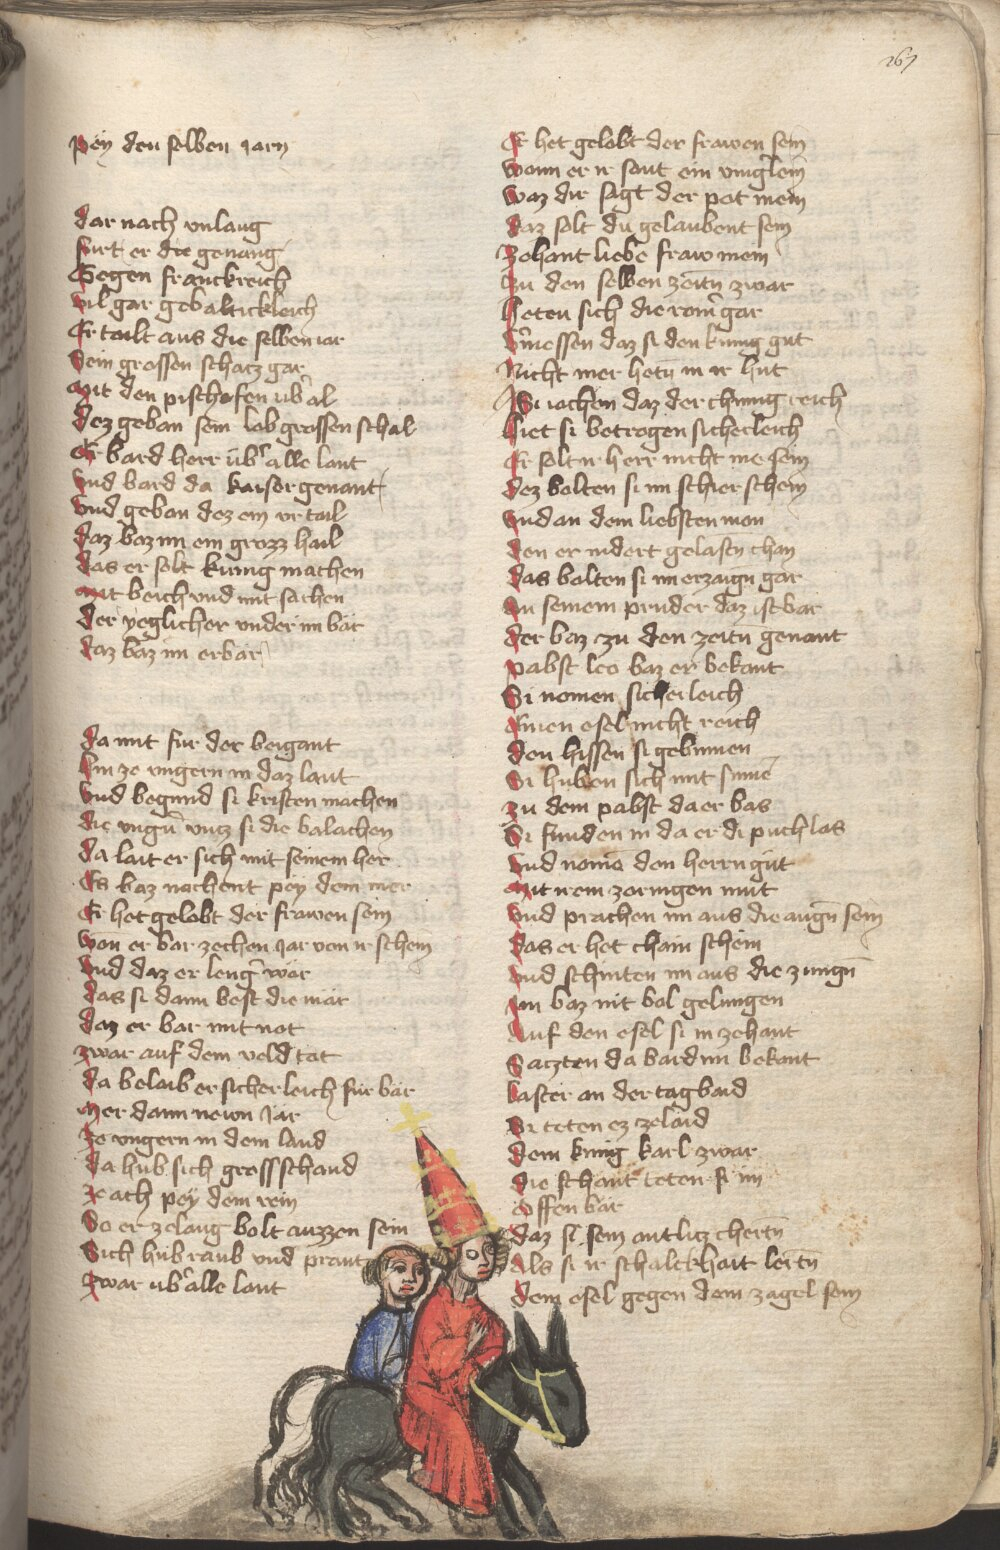 267
Pey den selben iarn
dar nach unlang
furt er die genang
Gegen franckreich
vil gar gebaltickleich
Er tailt aus die selben iar
Sein grossen schacz gar
Mit den pischofen ub̾al
dez geban sein lob grossen schal
Er bard herr ub̾ alle lant
Und bard da kaiser genant
Und geban dez ein urtail
daz baz im ein grozz hail
das er solt kunig machen
Mit beich und mit sachen
der yeglicher under im bär
daz baz im erbär
da mit fur der beigant
hin ze ungern in daz lant
Und begund si kristen machen
die ungn̄ uncz si die balachen
da lait er sich mit seinem her
Es baz nachent pey dem mer
Er het gelobt der frawen sein
Wan er bar zechen iar von ir schein
Und daz er leng̾ wär
das si dann best die mär
daz er bar mit not
zwar auf dem veld tot
da belaib er sicherleich für bär
Mer dann newn iar
ze ungern in dem land
da hub sich gross schand
ze ach pey dem rein
Do er ze lang bolt auzzen sein
Sich hub raub und prant
zwar ub̾ alle lant
Er het gelobt der frawen sein
wann er ir sant ein vinḡlein
waz dir sagt der pot mein
daz solt du gelaubent sein
zehant liebe fraw mein
zu den selben zeitn̄ zwar
heten sich die rom̾ gar
v̾messen daz si den kunig gut
Nicht mer hetn̄ in ir hut
Si iachen daz der chunig reich
hiet si betrogen sicherleich
Er solt ir herr nicht me sein
dez bolten si im schier schein
und an dem liebsten man
den er indert gelasen chan
das bolten si im erzaign̄ gar
An seinem pruder daz ist bar
der baz zu den zeitn̄ genant
pabst leo baz er bekant
Si nomen sicherleich
Ainen esel nicht reich
den hissen si gebinnen
Si huben sich mit sinnē
zu dem pabst da er bas
Si funden in da er di puch las
und nomē den herrn gut
Mit irem zornigen mut
Und prachen im aus die augn̄ sein
das er het chain schein
und schniten im aus die zungn̄
im baz nit bol gelungen
Auf den esel si in zehant
Saczten da bard im bekant
laster an der tagbaid
Si teten ez ze laid
dem kunig karl zwar
die schant teten si im
offenbär
daz si sein antlicz chertn̄
Als si ir schalckhait lertn̄
dem esel gegen dem zagel sein